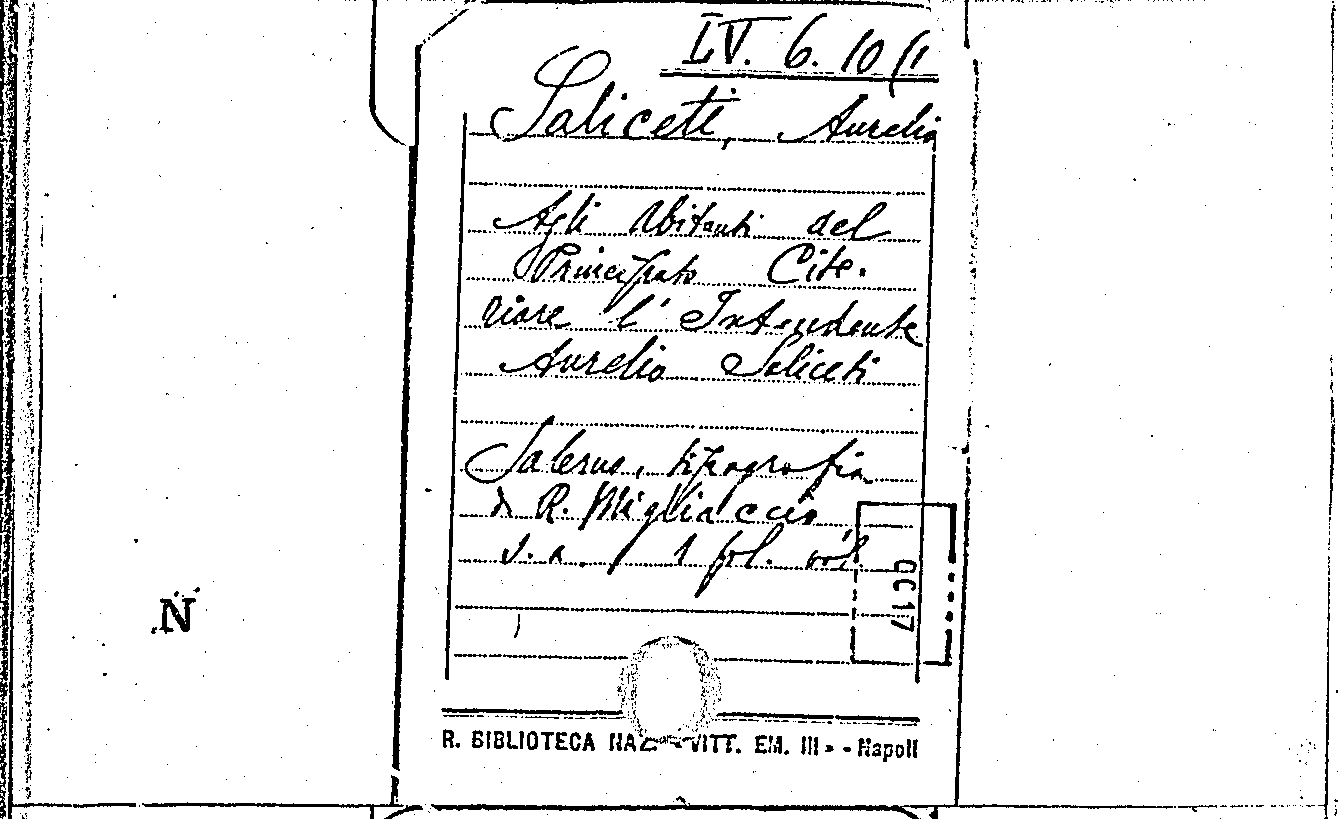 LV. 6. 10 (1
Saliceti, Aurelio
Agli Abitanti del
Principato Cite-
riore l'Intendente
Aurelio Saliceti
Salerno, tipografia
di R. Migliaccio
s. a. / 1 fol. vol.
CC 17
N
R. BIBLIOTECA NAZ. « VITT. EM. III » - Napoli